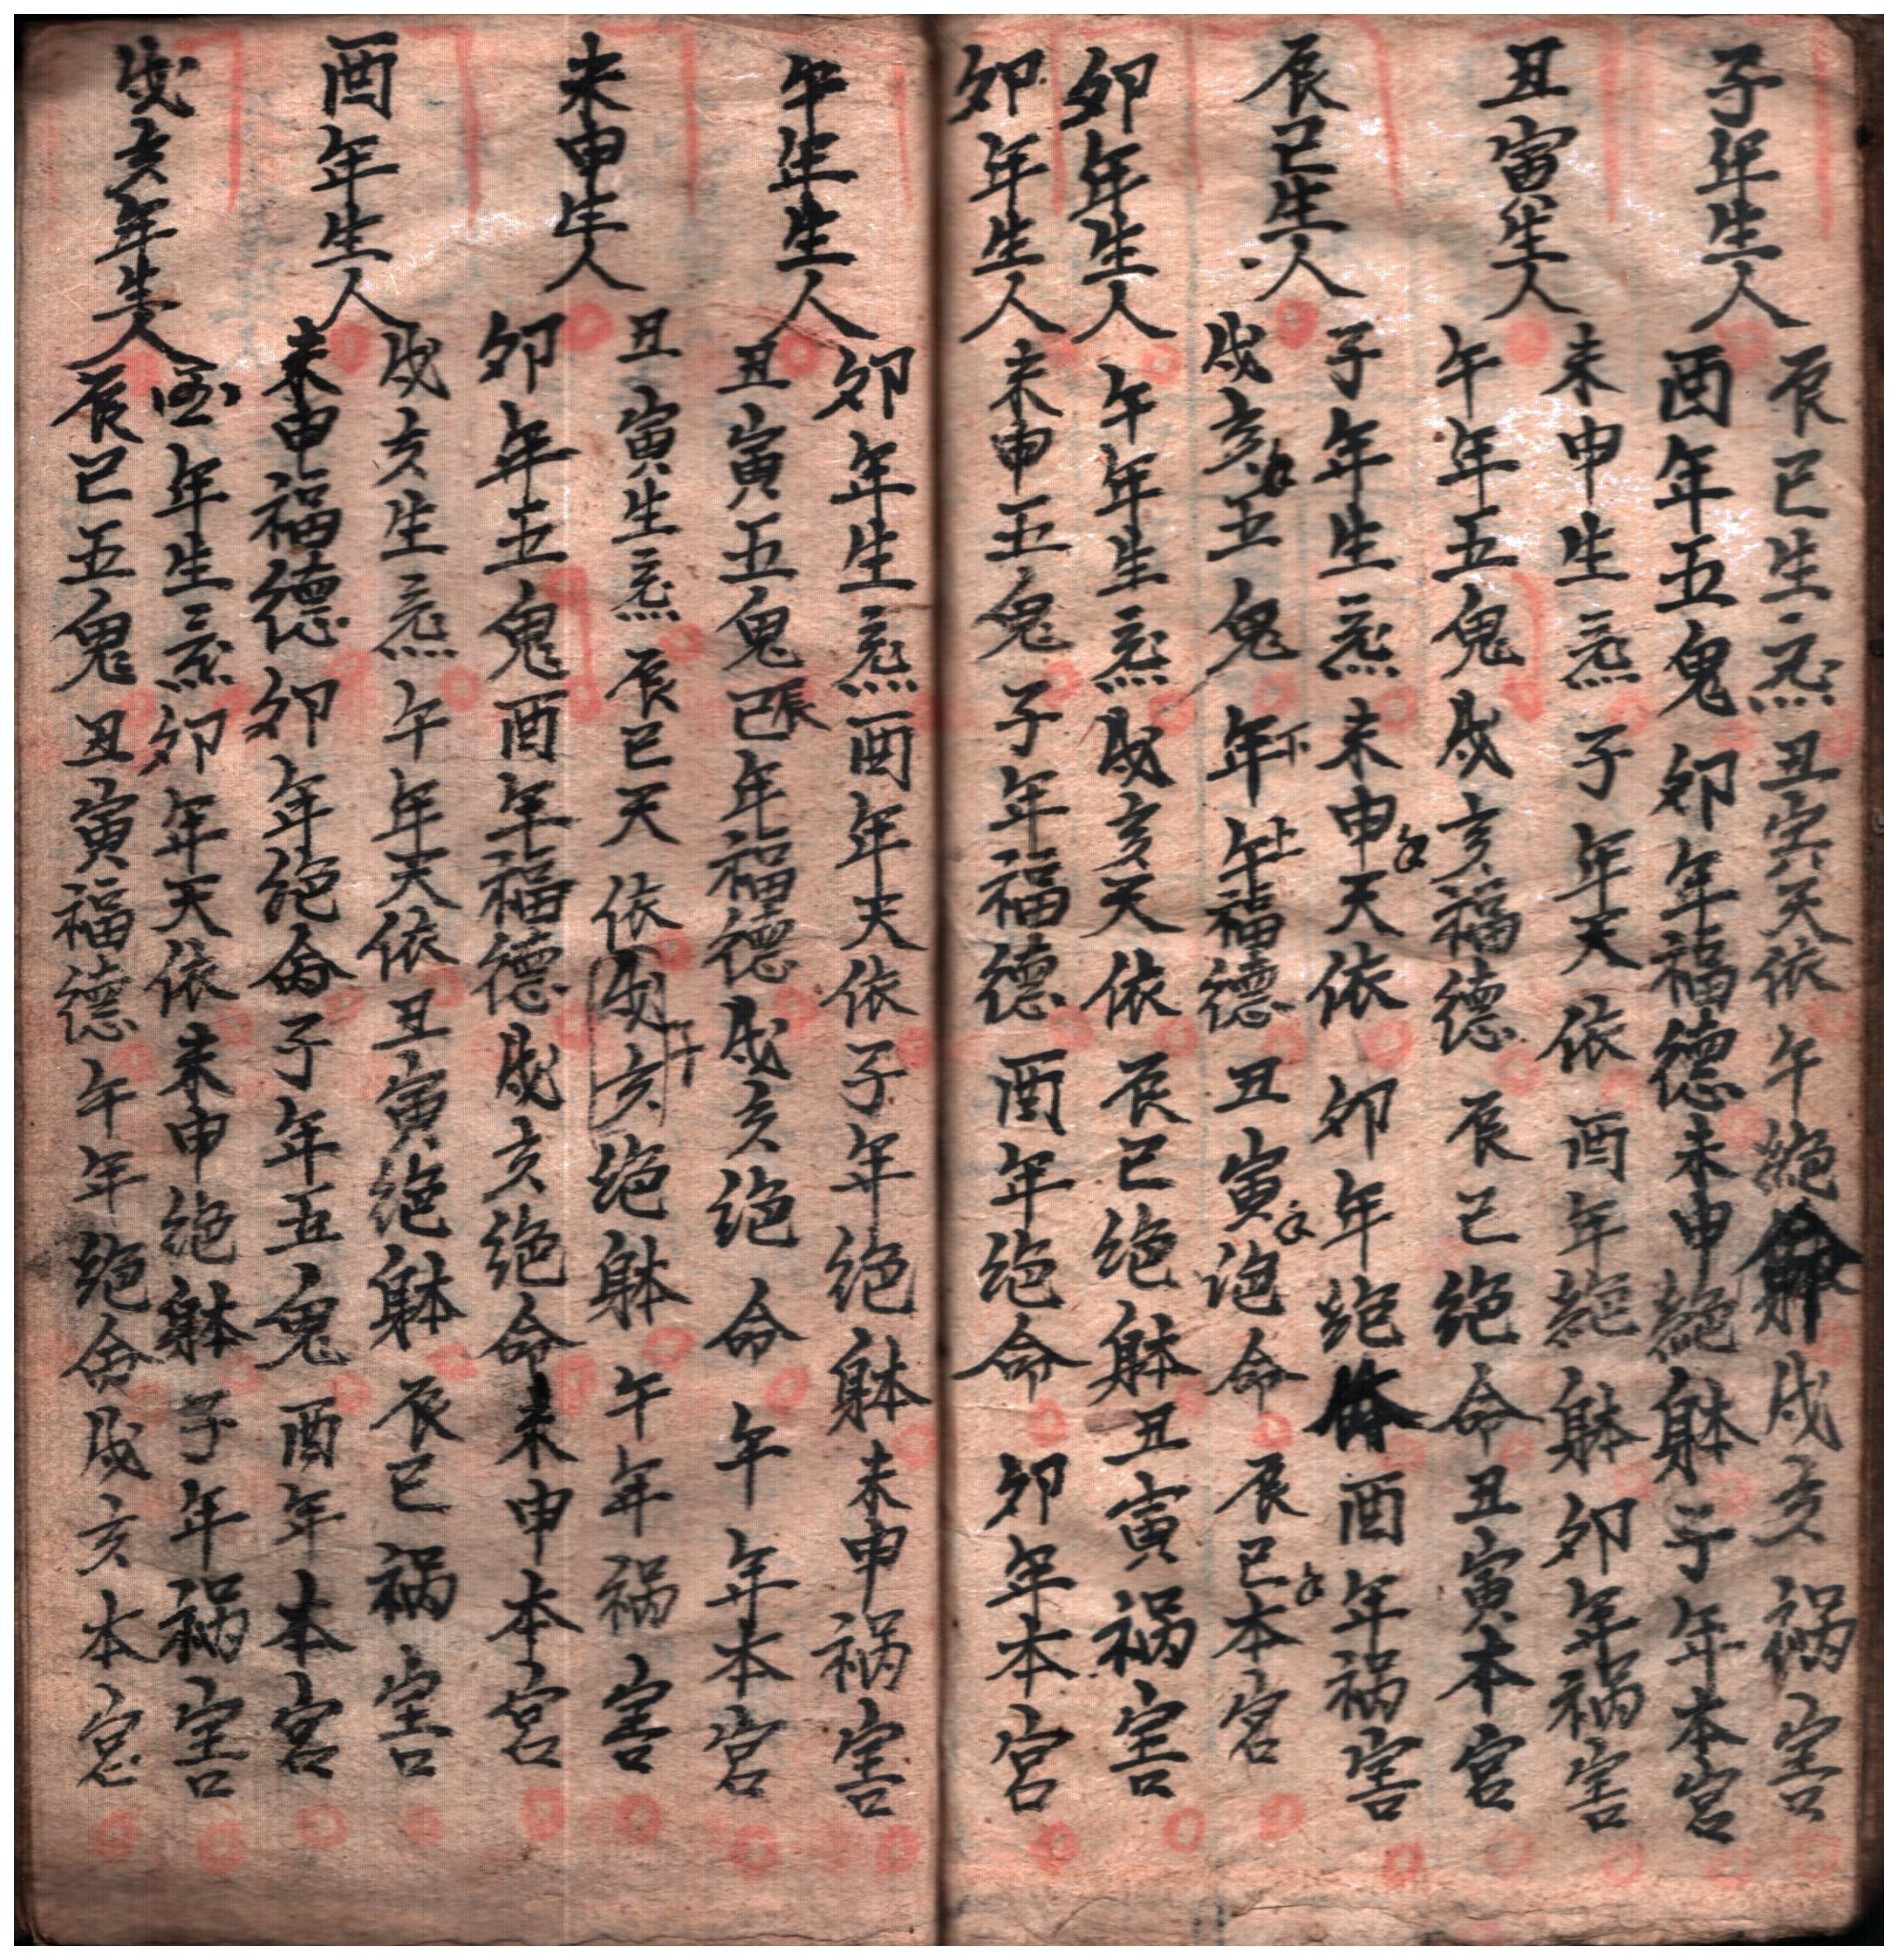 子年生人
辰巳生炁丑宾天依午絕命戌亥祸害
酉年五鬼卯年福德未申絕躰子年本宫
丑寅生人
未申生炁子年天依酉年絕躰卯年祸害
午年五鬼戌亥福德辰巳绝命丑寅本宫
辰巳生人
子年生炁未申天依卯年绝命酉年祸害
戌亥五鬼年下午上福德丑寅绝命辰巳本宫
卯年生人
午年生炁戌亥天依辰巳绝躰丑寅祸害
卯年生人
未申五鬼子年福德酉年绝命卯年本宫
午年生人
卯年生炁酉年天依子年绝躰未申祸害
丑寅五鬼巳辰年福德戌亥绝命午年本宫
未申生人
丑寅生炁辰巳天依戌亥子绝躰午年祸害
卯年五鬼酉年福德戌亥绝命未申本宫
酉年生人
戌亥生炁午年天依丑寅绝躰辰巳祸害
未申福德卯年绝命子年五鬼酉年本宫
戌亥年生人
酉年生炁卯年天依未申绝躰子年祸害
辰巳五鬼丑寅福德午年绝命戌亥本宫